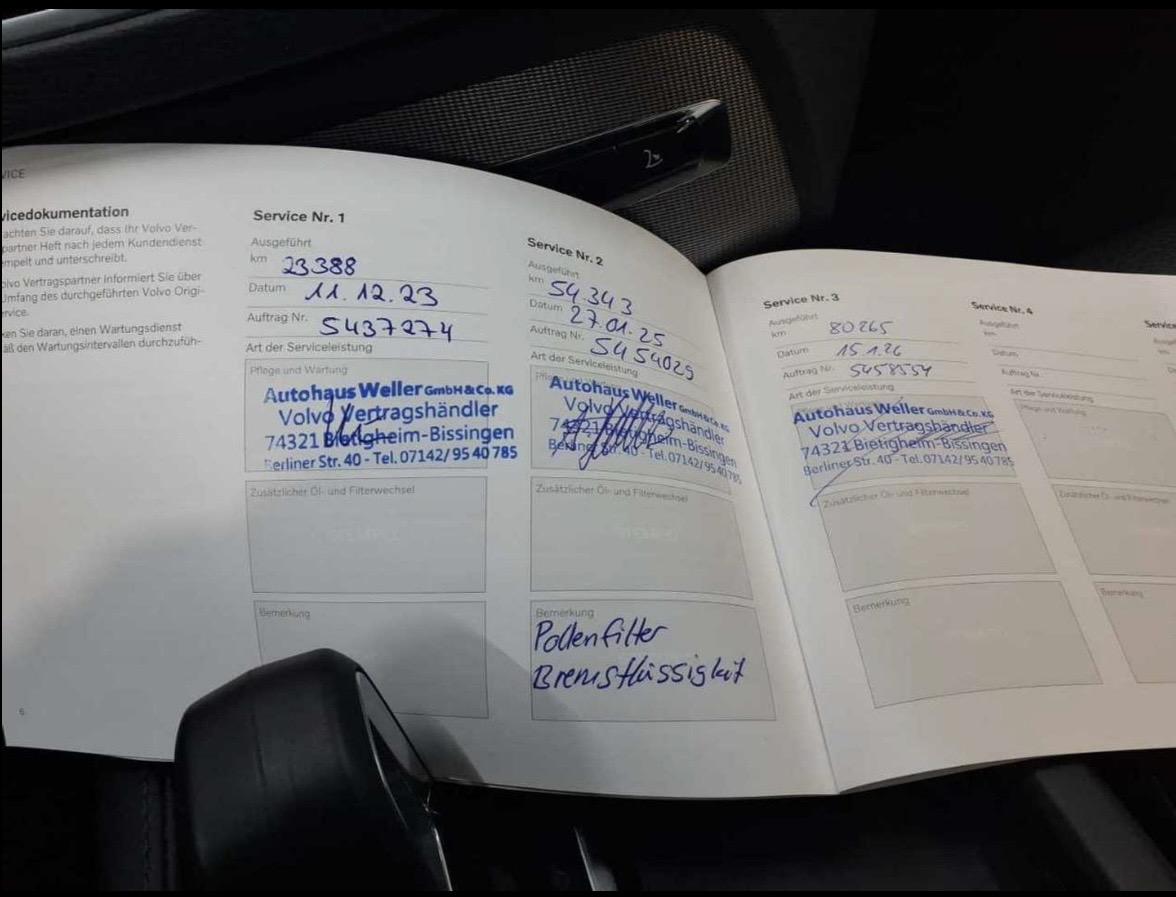 VICE
vicedokumentation
achten Sie darauf, dass Ihr Volvo Ver-
partner Heft nach jedem Kundendienst
empelt und unterschreibt.
olvo Vertragspartner informiert Sie über
Umfang des durchgeführten Volvo Origi-
rvice.
ken Sie daran, einen Wartungsdienst
äß den Wartungsintervallen durchzufüh-
6
Service Nr. 1
Ausgeführt
km 23388
Datum 11.12.23
Auftrag Nr. 5437274
Art der Serviceleistung
Pflege und Wartung
Autohaus Weller GmbH & Co. KG
Volvo Vertragshändler
74321 Bietigheim-Bissingen
Berliner Str. 40 - Tel. 07142/95 40 785
Zusätzlicher Öl- und Filterwechsel
Bemerkung
Service Nr. 2
Ausgeführt
km 54.343
Datum 27.01.25
Auftrag Nr. 5454029
Art der Serviceleistung
Autohaus Weller GmbH & Co. KG
Volvo Vertragshändler
74321 Bietigheim-Bissingen
Berliner Str. 40 - Tel. 07142/95 40 785
Zusätzlicher Öl- und Filterwechsel
Bemerkung
Pollenfilter
Bremsflüssigkeit
Service Nr. 3
Ausgeführt
km 80265
Datum 15.1.26
Auftrag Nr. 5458554
Art der Serviceleistung
Autohaus Weller GmbH & Co. KG
Volvo Vertragshändler
74321 Bietigheim-Bissingen
Berliner Str. 40 - Tel. 07142/95 40 785
Zusätzlicher Öl- und Filterwechsel
Bemerkung
Service Nr. 4
Ausgeführt
km
Datum
Auftrag Nr.
Art der Serviceleistung
Pflege und Wartung
Zusätzlicher Öl- und Filterwechsel
Bemerkung
Service